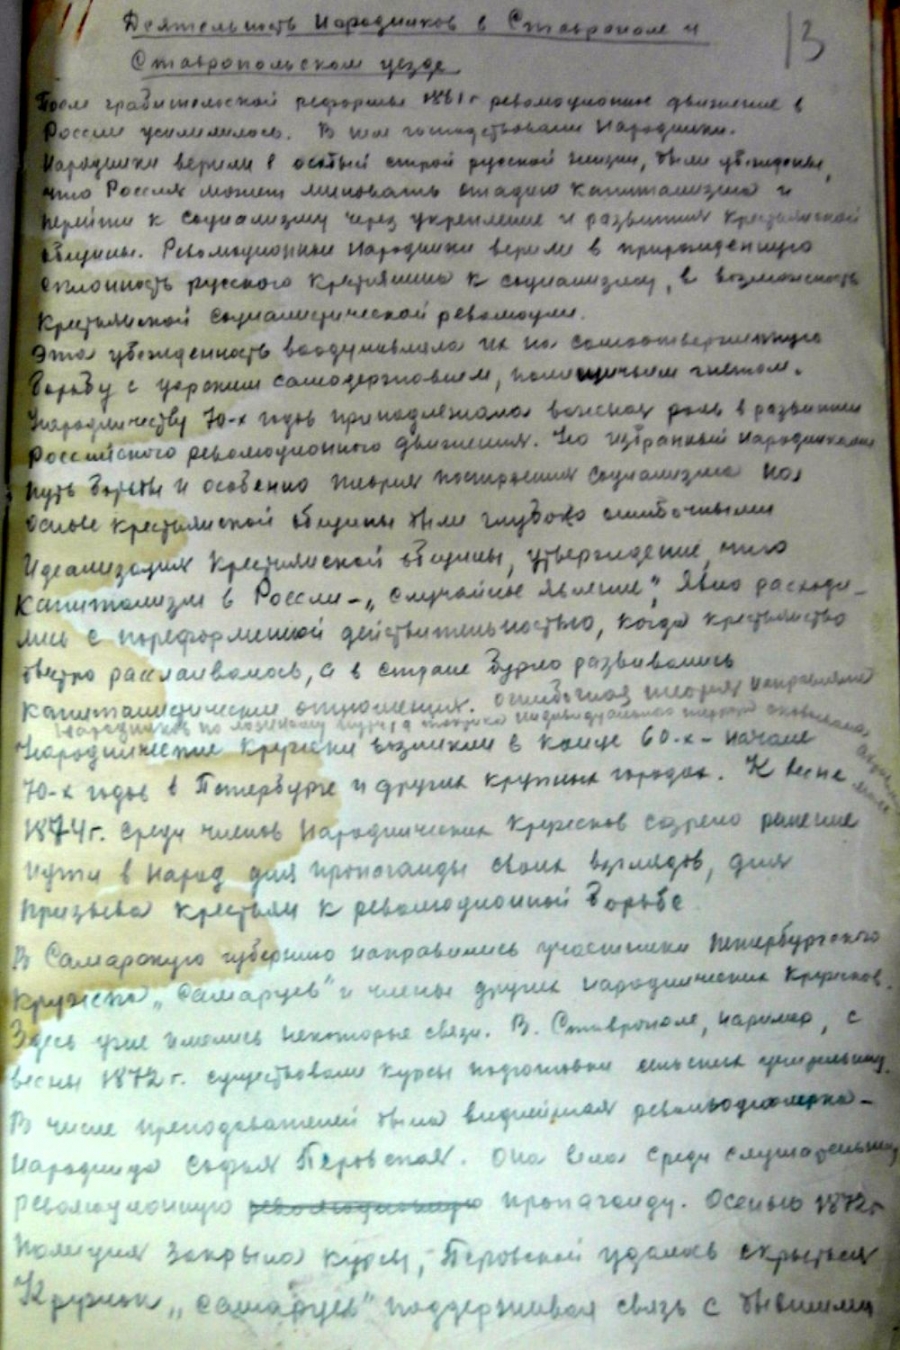 13
Деятельность народников в Ставрополе и
Ставропольском уезде
После грабительской реформы 1861 г революционное движение в
России усилилось. В нем господствовали народники.
Народники верили в особый строй русской жизни, были убеждены,
что Россия может миновать стадию капитализма и
перейти к социализму через укрепление и развитие крестьянской
общины. Революционные народники верили в прирожденную
склонность русского крестьянина к социализму, в возможность
крестьянской социалистической революции.
Эта убежденность воодушевляла их на самоотверженную
борьбу с царским самодержавием, помещичьим гнетом.
Народничеству 70-х годов принадлежала важная роль в развитии
Российского революционного движения. Но избранный народниками
путь борьбы и особенно теория построения социализма на
основе крестьянской общины были глубоко ошибочными
Идеализация крестьянской общины, утверждение, что
капитализм в России - „случайное явление", явно расходи-
лись с пореформенной действительностью, когда крестьянство
быстро расслаивалось, а в стране бурно развивались
капиталистические отношения. Ошибочная теория направляла
народников по ложному пути, а тактика индивидуального террора оказывала
Народнические кружки возникли в конце 60-х - начале
70-х годов в Петербурге и других крупных городах. К весне
1874 г. среди членов народнических кружков созрело решение
идти в народ для пропаганды своих взглядов, для
призыва крестьян к революционной борьбе
В Самарскую губернию направились участники Петербургского
кружка „самарцев" и члены других народнических кружков.
Здесь уже имелись некоторые связи. В. Ставрополе, например, с
весны 1872 г. существовали курсы подготовки сельских учительниц.
В числе преподавателей была виднейшая революционерка-
народница Софья Перовская. Она вела среди слушательниц
революционную революционную пропаганду. Осенью 1872 г
полиция закрыла курсы, Перовской удалось скрыться
Кружок „самарцев" поддерживая связь с бывшими